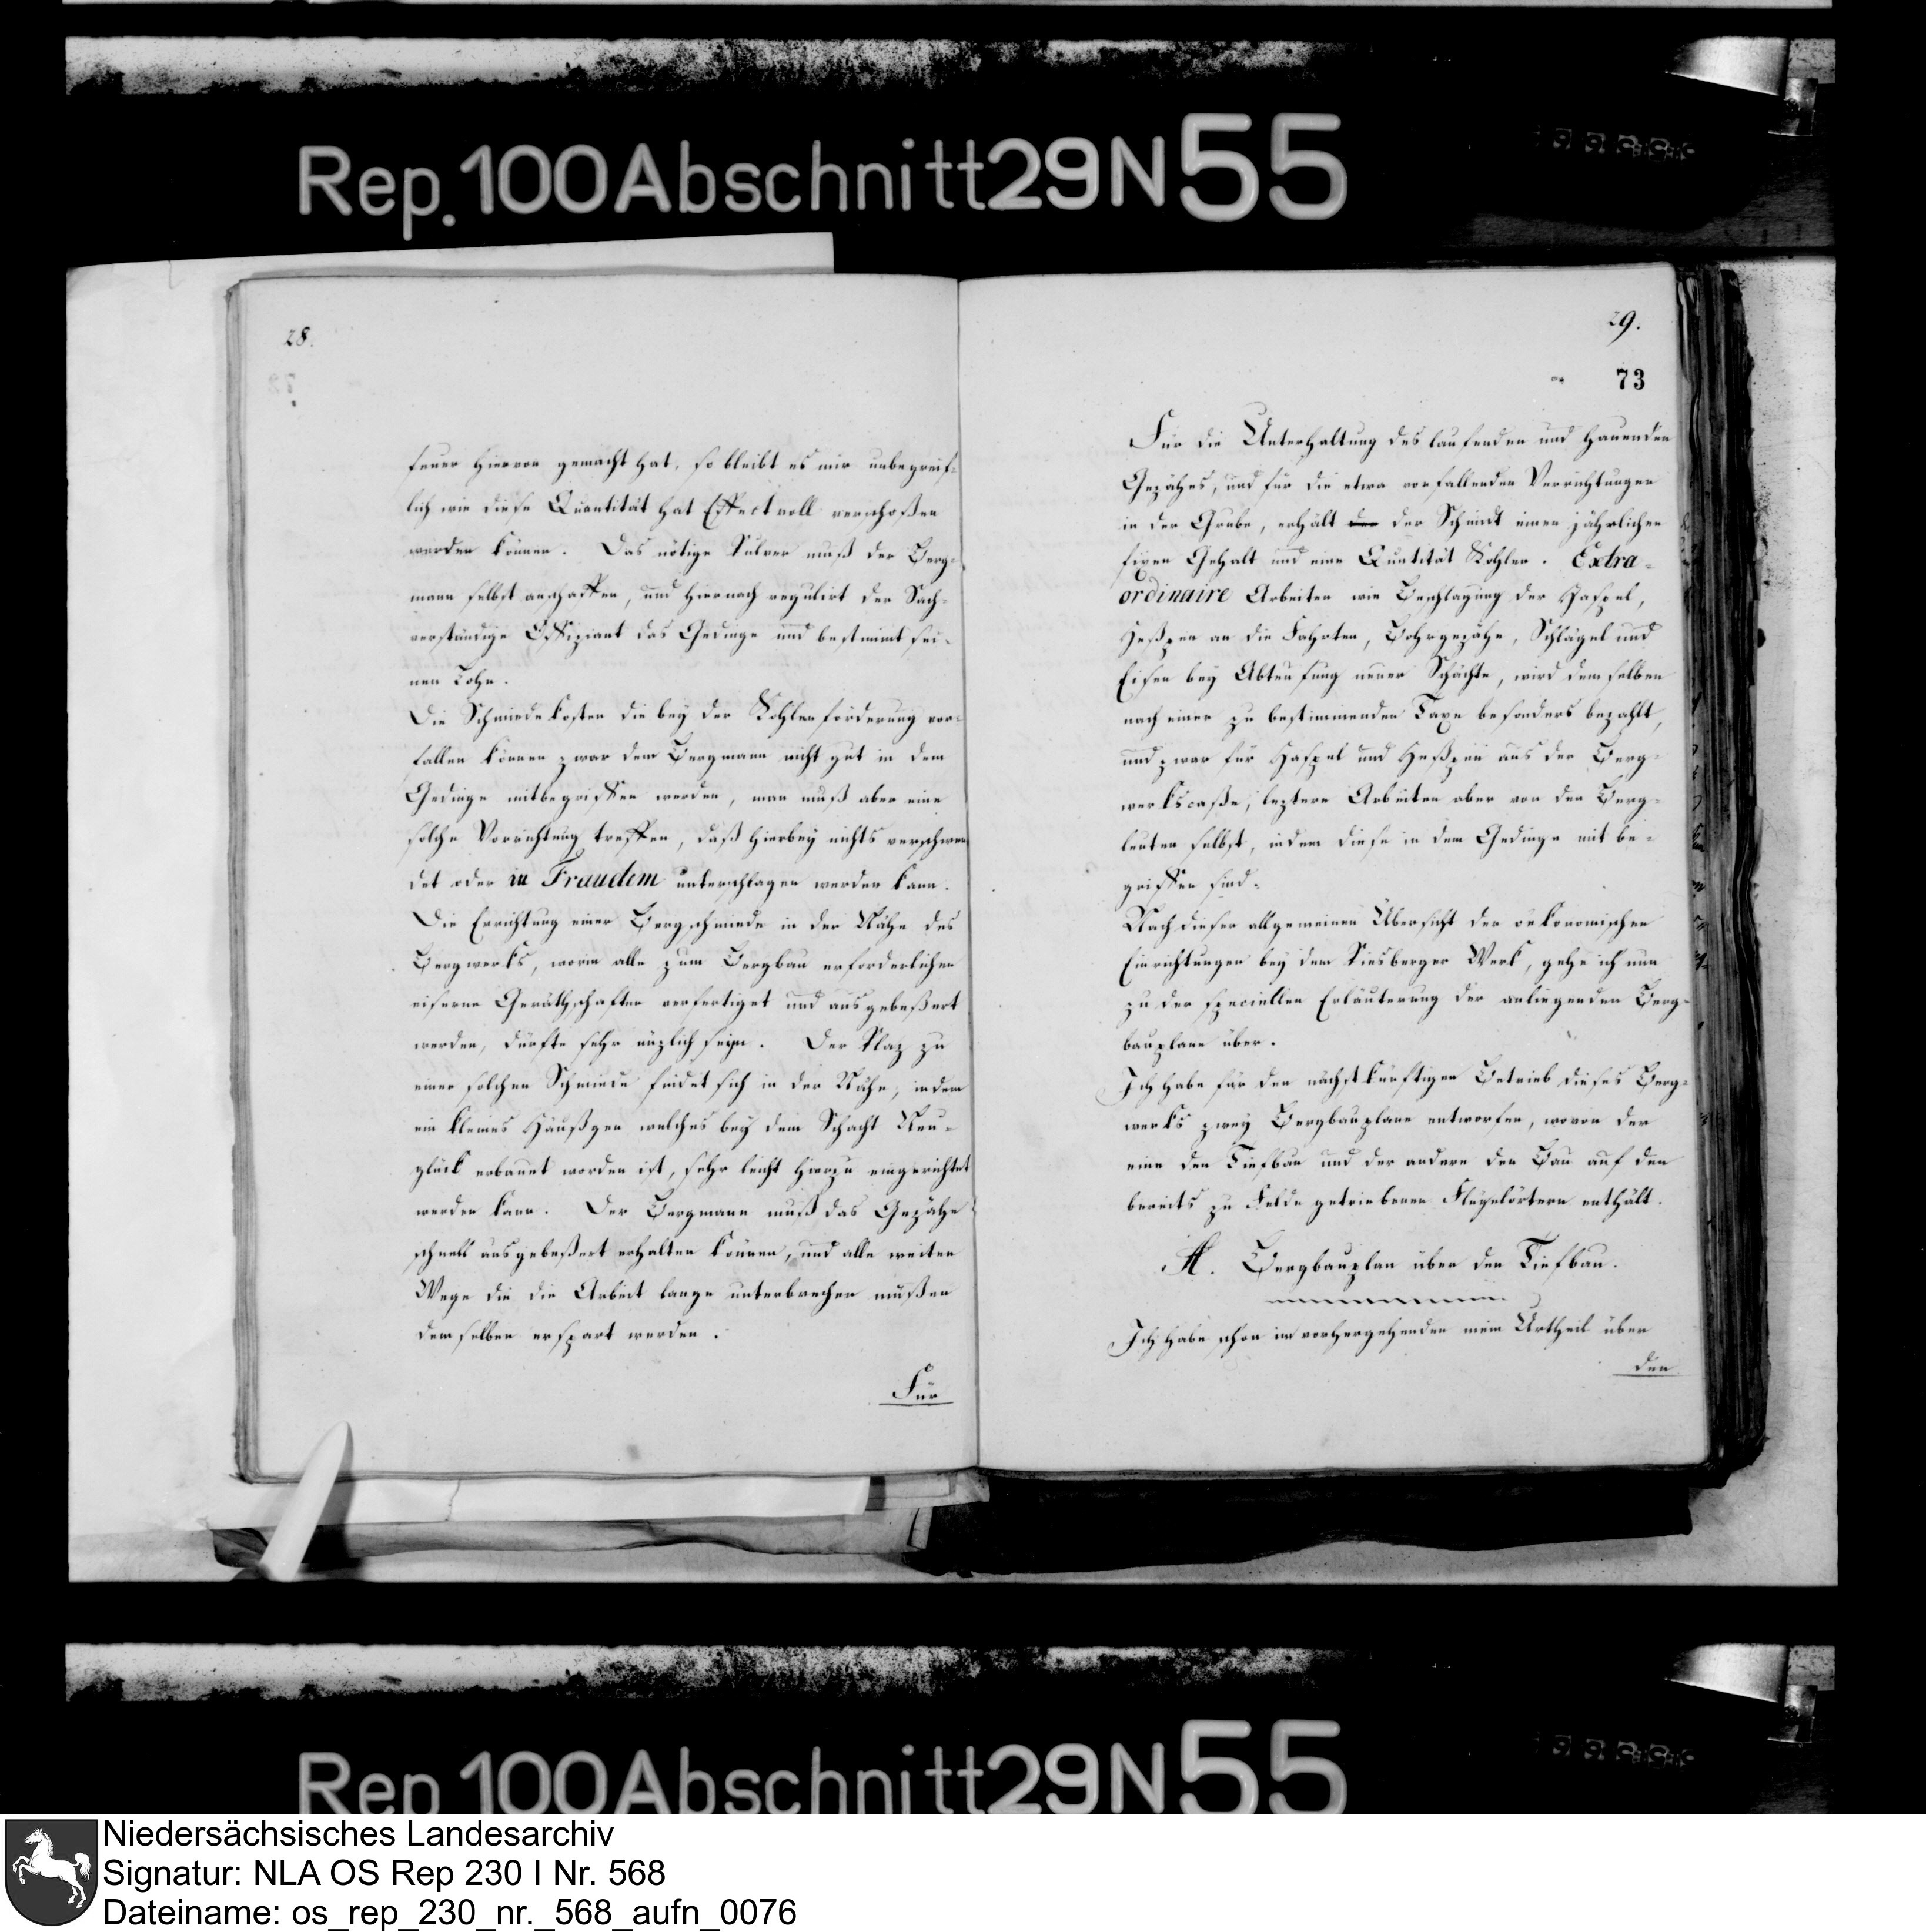 Rep. 100 Abschnitt 29 N 55
28.
feuer hiervon gemacht hat, so bleibt es mir unbegreif-
lich wie diese Quantität hat Effectvoll verschoßen
werden können. Das nötige Pulver muß der Berg-
mann selbst anschaffen, und hiernach regulirt der Sach-
verständige Offiziant das Gedinge und bestimmt sei-
nen Lohn.
Die Schmiedekosten die bey der Kohlenförderung vor-
fallen können zwar dem Bergmann nicht gut in dem
Gedinge mitbegriffen werden, man muß aber eine
solche Vorrichtung treffen, daß hierbey nichts verschwen
det oder in Fraudem unterschlagen werden kann.
Die Errichtung einer Bergschmiede in der Nähe des
Bergwerks, worin alle zum Bergbau erforderlichen
eiserne Geräthschaften verfertiget und ausgebeßert
werden, dürfte sehr nüzlich seyn. Der Plaz zu
einer solchen Schmiede findet sich in der Nähe, indem
ein kleines Häußgen welches bey dem Schacht Neu-
glück erbauet worden ist, sehr leicht hierzu eingerichtet
werden kann. Der Bergmann muß das Gezähe
schnell ausgebeßert erhalten können, und alle weiten
Wege die die Arbeit lange unterbrechen müßen
demselben erspart werden.
Für
29.
73
Für die Unterhaltung des laufenden und hauenden
Gezähes, und für die etwa vorfallenden Verrichtungen
in der Grube, erhält der Schmidt einen jährlichen
fixen Gehalt und eine Quntität Kohlen. Extra-
ordinaire Arbeiten wie Beschlagung der Haspel,
Heßpen an die Fahrten, Bohrgezähe, Schlägel und
Eisen bey Abteufung neuer Schächte, wird demselben
nach einer zu bestimmenden Taxe besonders bezahlt,
und zwar für Haspel und Heßpen aus der Berg-
werkscaße, leztere Arbeiten aber von den Berg-
leuten selbst, indem diese in dem Gedinge mit be-
griffen sind.
Nach dieser allgemeinen Übersicht der oekonomischen
Einrichtungen bey dem Piesberger Werk, gehe ich nun
zu der speciellen Erläuterung der anliegenden Berg-
bauplane über.
Ich habe für den nächstkünftigen Betrieb dieses Berg-
werks zwey Bergbauplane entworfen, wovon der
eine den Tiefbau und der andere den Bau auf den
bereits zu Felde getriebenen Flügelörtern enthält.
A. Bergbauplan über den Tiefbau.
Ich habe schon im vorhergehenden mein Urtheil über
den
Rep 100 Abschnitt 29 N 55
Niedersächsisches Landesarchiv
Signatur: NLA OS Rep 230 I Nr. 568
Dateiname: os_rep_230_nr._568_aufn_0076